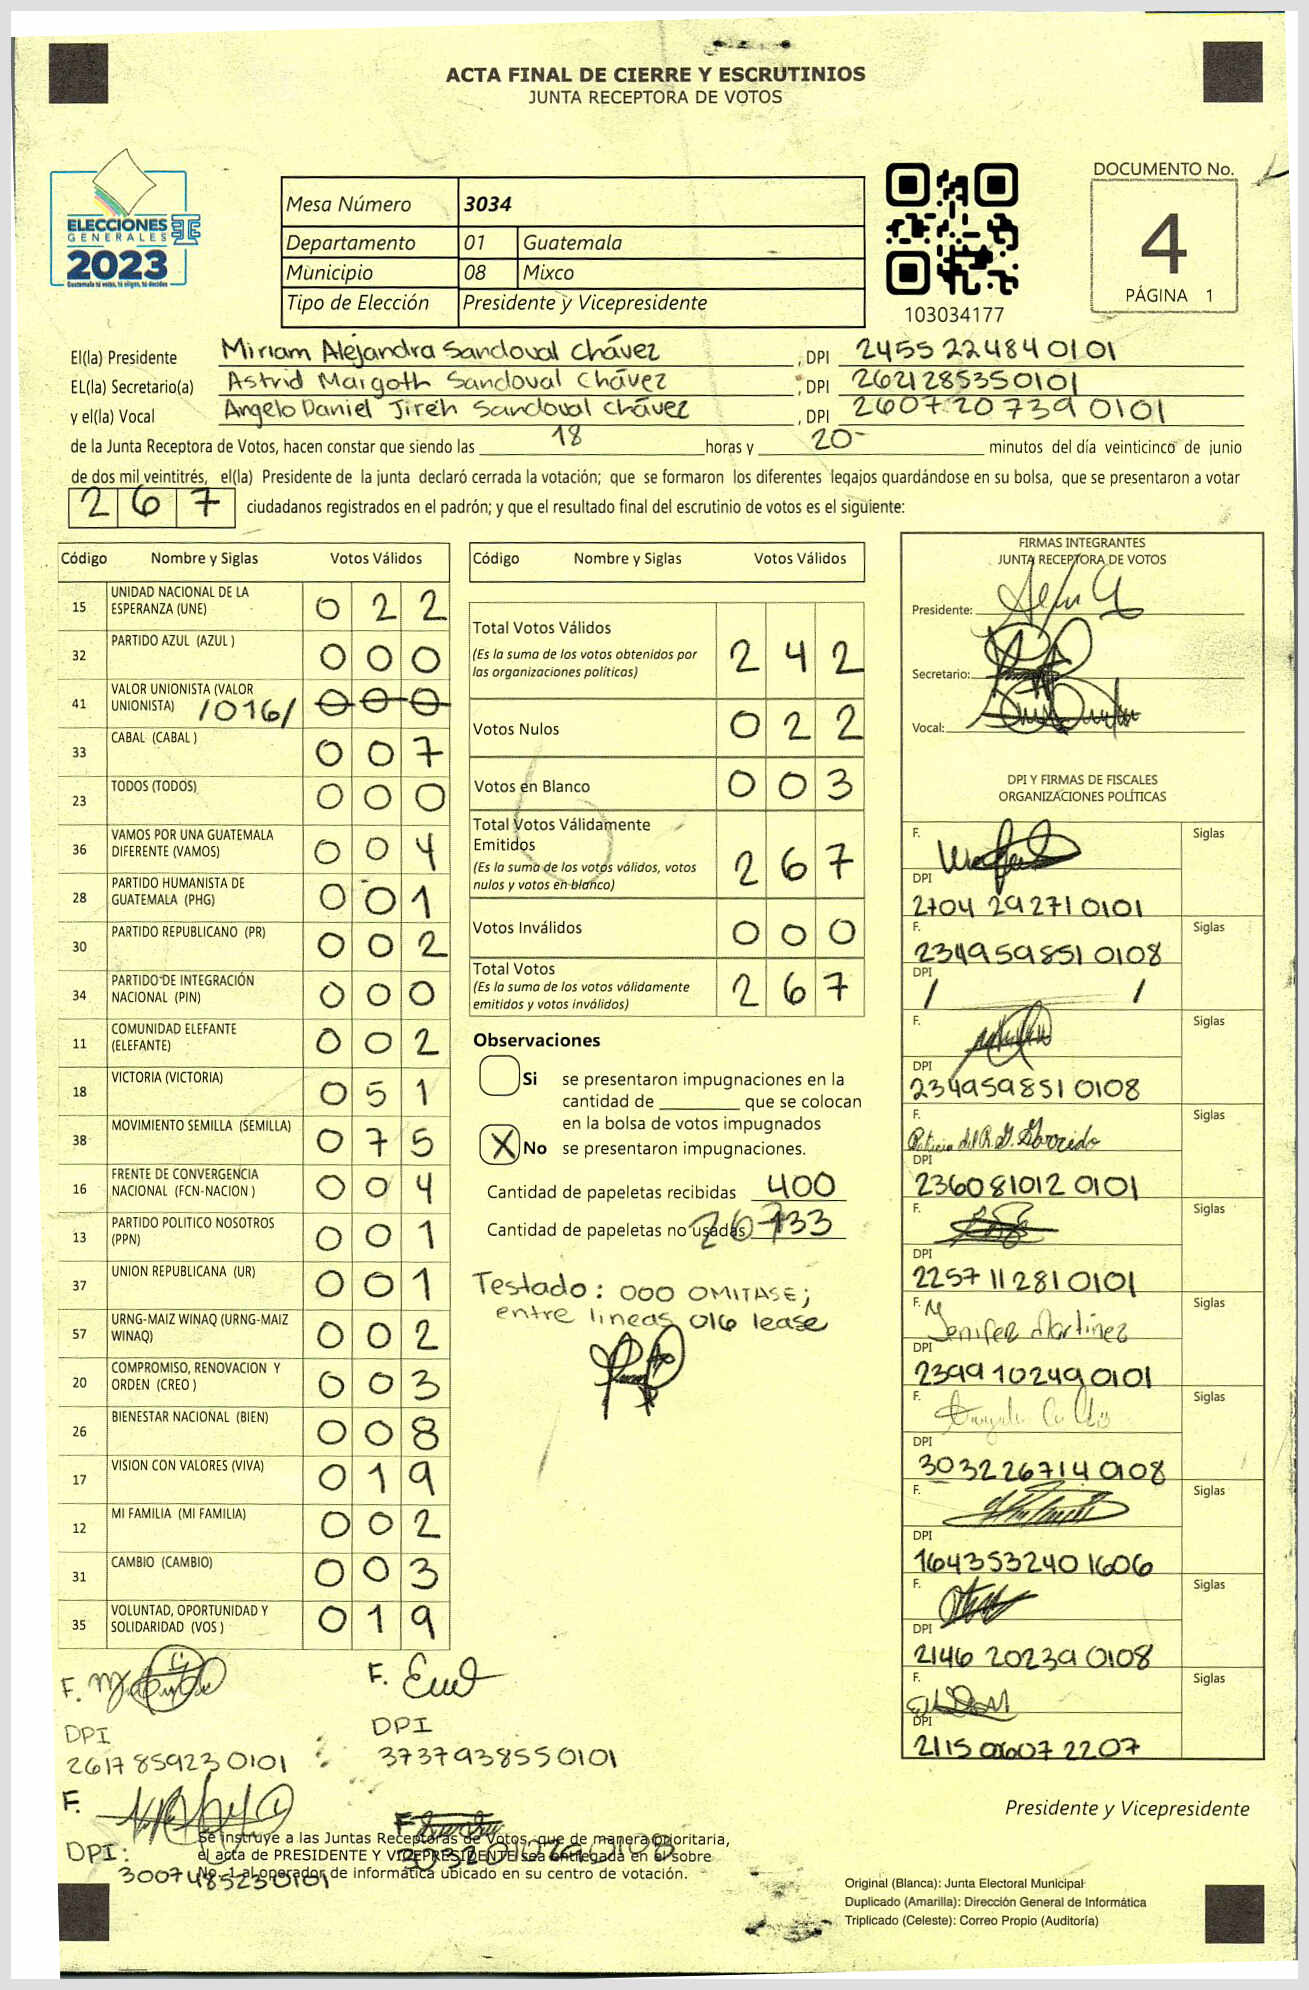 ACTA FINAL DE CIERRE Y ESCRUTINIOS
JUNTA RECEPTORA DE VOTOS
ELECCIONES
GENERALES
2023
Guatemala tú votas, tú eliges, tú decides
Mesa Número 3034
Departamento 01 Guatemala
Municipio 08 Mixco
Tipo de Elección Presidente y Vicepresidente
103034177
DOCUMENTO No.
4
PÁGINA 1
El(la) Presidente Miriam Alejandra Sandoval Chávez, DPI 2455 22484 0101
EL(la) Secretario(a) Astrid Margoth Sandoval Chávez, DPI 2621285350101
y el(la) Vocal Angelo Daniel Jireh Sandoval Chávez, DPI 2607 20 739 0101
de la Junta Receptora de Votos, hacen constar que siendo las 18 horas y 20- minutos del día veinticinco de junio
de dos mil veintitrés, el(la) Presidente de la junta declaró cerrada la votación; que se formaron los diferentes legajos guardándose en su bolsa, que se presentaron a votar
267 ciudadanos registrados en el padrón; y que el resultado final del escrutinio de votos es el siguiente:
Código Nombre y Siglas Votos Válidos
15 UNIDAD NACIONAL DE LA ESPERANZA (UNE) 0 2 2
32 PARTIDO AZUL (AZUL ) 0 0 0
41 VALOR UNIONISTA (VALOR UNIONISTA) /016/ 0 0 0
33 CABAL (CABAL ) 0 0 7
23 TODOS (TODOS) 0 0 0
36 VAMOS POR UNA GUATEMALA DIFERENTE (VAMOS) 0 0 4
28 PARTIDO HUMANISTA DE GUATEMALA (PHG) 0 0 1
30 PARTIDO REPUBLICANO (PR) 0 0 2
34 PARTIDO DE INTEGRACIÓN NACIONAL (PIN) 0 0 0
11 COMUNIDAD ELEFANTE (ELEFANTE) 0 0 2
18 VICTORIA (VICTORIA) 0 5 1
38 MOVIMIENTO SEMILLA (SEMILLA) 0 7 5
16 FRENTE DE CONVERGENCIA NACIONAL (FCN-NACION ) 0 0 4
13 PARTIDO POLITICO NOSOTROS (PPN) 0 0 1
37 UNION REPUBLICANA (UR) 0 0 1
57 URNG-MAIZ WINAQ (URNG-MAIZ WINAQ) 0 0 2
20 COMPROMISO, RENOVACION Y ORDEN (CREO ) 0 0 3
26 BIENESTAR NACIONAL (BIEN) 0 0 8
17 VISION CON VALORES (VIVA) 0 1 9
12 MI FAMILIA (MI FAMILIA) 0 0 2
31 CAMBIO (CAMBIO) 0 0 3
35 VOLUNTAD, OPORTUNIDAD Y SOLIDARIDAD (VOS ) 0 1 9
Código Nombre y Siglas Votos Válidos
Total Votos Válidos 2 4 2
(Es la suma de los votos obtenidos por
las organizaciones políticas)
Votos Nulos 0 2 2
Votos en Blanco 0 0 3
Total Votos Válidamente
Emitidos 2 6 7
(Es la suma de los votos válidos, votos
nulos y votos en blanco)
Votos Inválidos 0 0 0
Total Votos 2 6 7
(Es la suma de los votos válidamente
emitidos y votos inválidos)
Observaciones
Si se presentaron impugnaciones en la
cantidad de ________ que se colocan
en la bolsa de votos impugnados
X No se presentaron impugnaciones.
Cantidad de papeletas recibidas 400
Cantidad de papeletas no usadas 133
Testado: 000 OMITASE;
entre lineas 016 lease
FIRMAS INTEGRANTES
JUNTA RECEPTORA DE VOTOS
Presidente:
Secretario:
Vocal:
DPI Y FIRMAS DE FISCALES
ORGANIZACIONES POLÍTICAS
F. Siglas
DPI
2704 29271 0101
F. 234959851 0108 Siglas
DPI
/ /
F. Siglas
DPI
234959851 0108
F. Patricia del R. G. Garrido Siglas
DPI
236081012 0101
F. Siglas
DPI
2257 11281 0101
F. Jenifer Martinez Siglas
DPI
2399 10249 0101
F. Siglas
DPI
303226714 0108
F. Siglas
DPI
164353240 1606
F. Siglas
DPI
2146 20239 0108
F. Siglas
DPI
2115 06072 2207
F.
DPI
2617 85923 0101
F.
DPI
373793855 0101
F.
DPI:
300748523 0101
F.
Se instruye a las Juntas Receptoras de Votos, que de manera prioritaria,
el acta de PRESIDENTE Y VICEPRESIDENTE sea entregada en el sobre
No. 1 al operador de informática ubicado en su centro de votación.
Presidente y Vicepresidente
Original (Blanca): Junta Electoral Municipal
Duplicado (Amarilla): Dirección General de Informática
Triplicado (Celeste): Correo Propio (Auditoría)